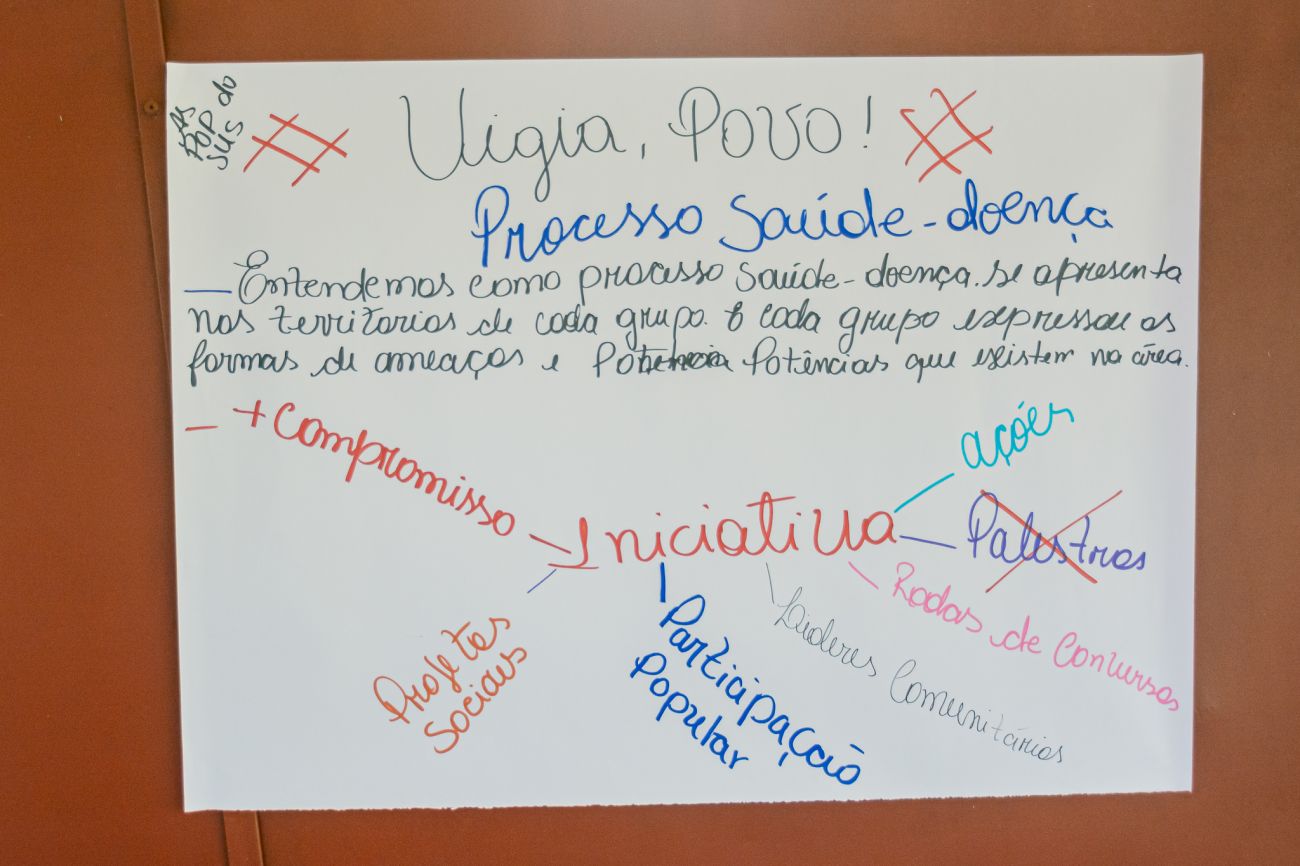 As
POP do
SUS
# Vigia, Povo! #
Processo Saúde-doença
— Entendemos como processo saúde-doença. se apresenta
nos territorios de cada grupo. E cada grupo expressou as
formas de ameaças e Potências que existem na área.
- + Compromisso
Iniciativa
Ações
Palestras
Rodas de Conversas
Líderes Comunitários
Participação
Popular
Projetos
sociais